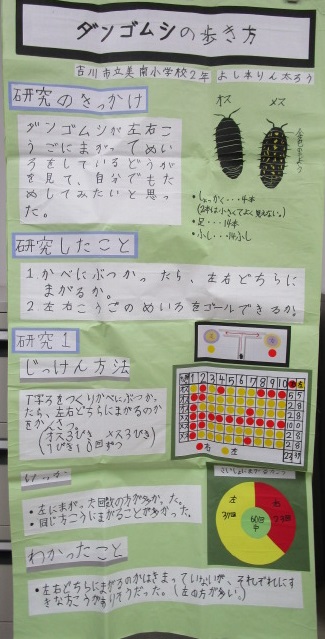 ダンゴムシの歩き方
吉川市立美南小学校2年 よし本りん太ろう
研究のきっかけ
ダンゴムシが左右こ
うごにまがってめい
ろをしているどうが
を見て、自分でもた
めしてみたいと思っ
た。
オス メス
金色のもよう
・しょっかく・・・4本
(2本は小さくてよく見えない。)
・足・・・14本
・ふし・・・14ふし
研究したこと
1.かべにぶつかったら、左右どちらに
まがるか。
2.左右こうごのめいろをゴールできるか。
研究1
じっけん方法
T字ろをつくりかべにぶつかっ
たら、左右どちらにまがるのか
をかんさつ。
(オス3びき メス3びき)
1ぴき10回ずつ
1 2 3 4 5 6 7 8 9 10
オス
オス
オス
メス
メス
メス
右 左
けっか
・左にまがった回数の方が多かった。
・同じ方こうにまがることが多かった。
左
37回
右
23回
60回
中
わかったこと
・左右どちらにまがるのかはきまっていないが、それぞれにす
きな方こうがありそうだった。(左の方が多い。)